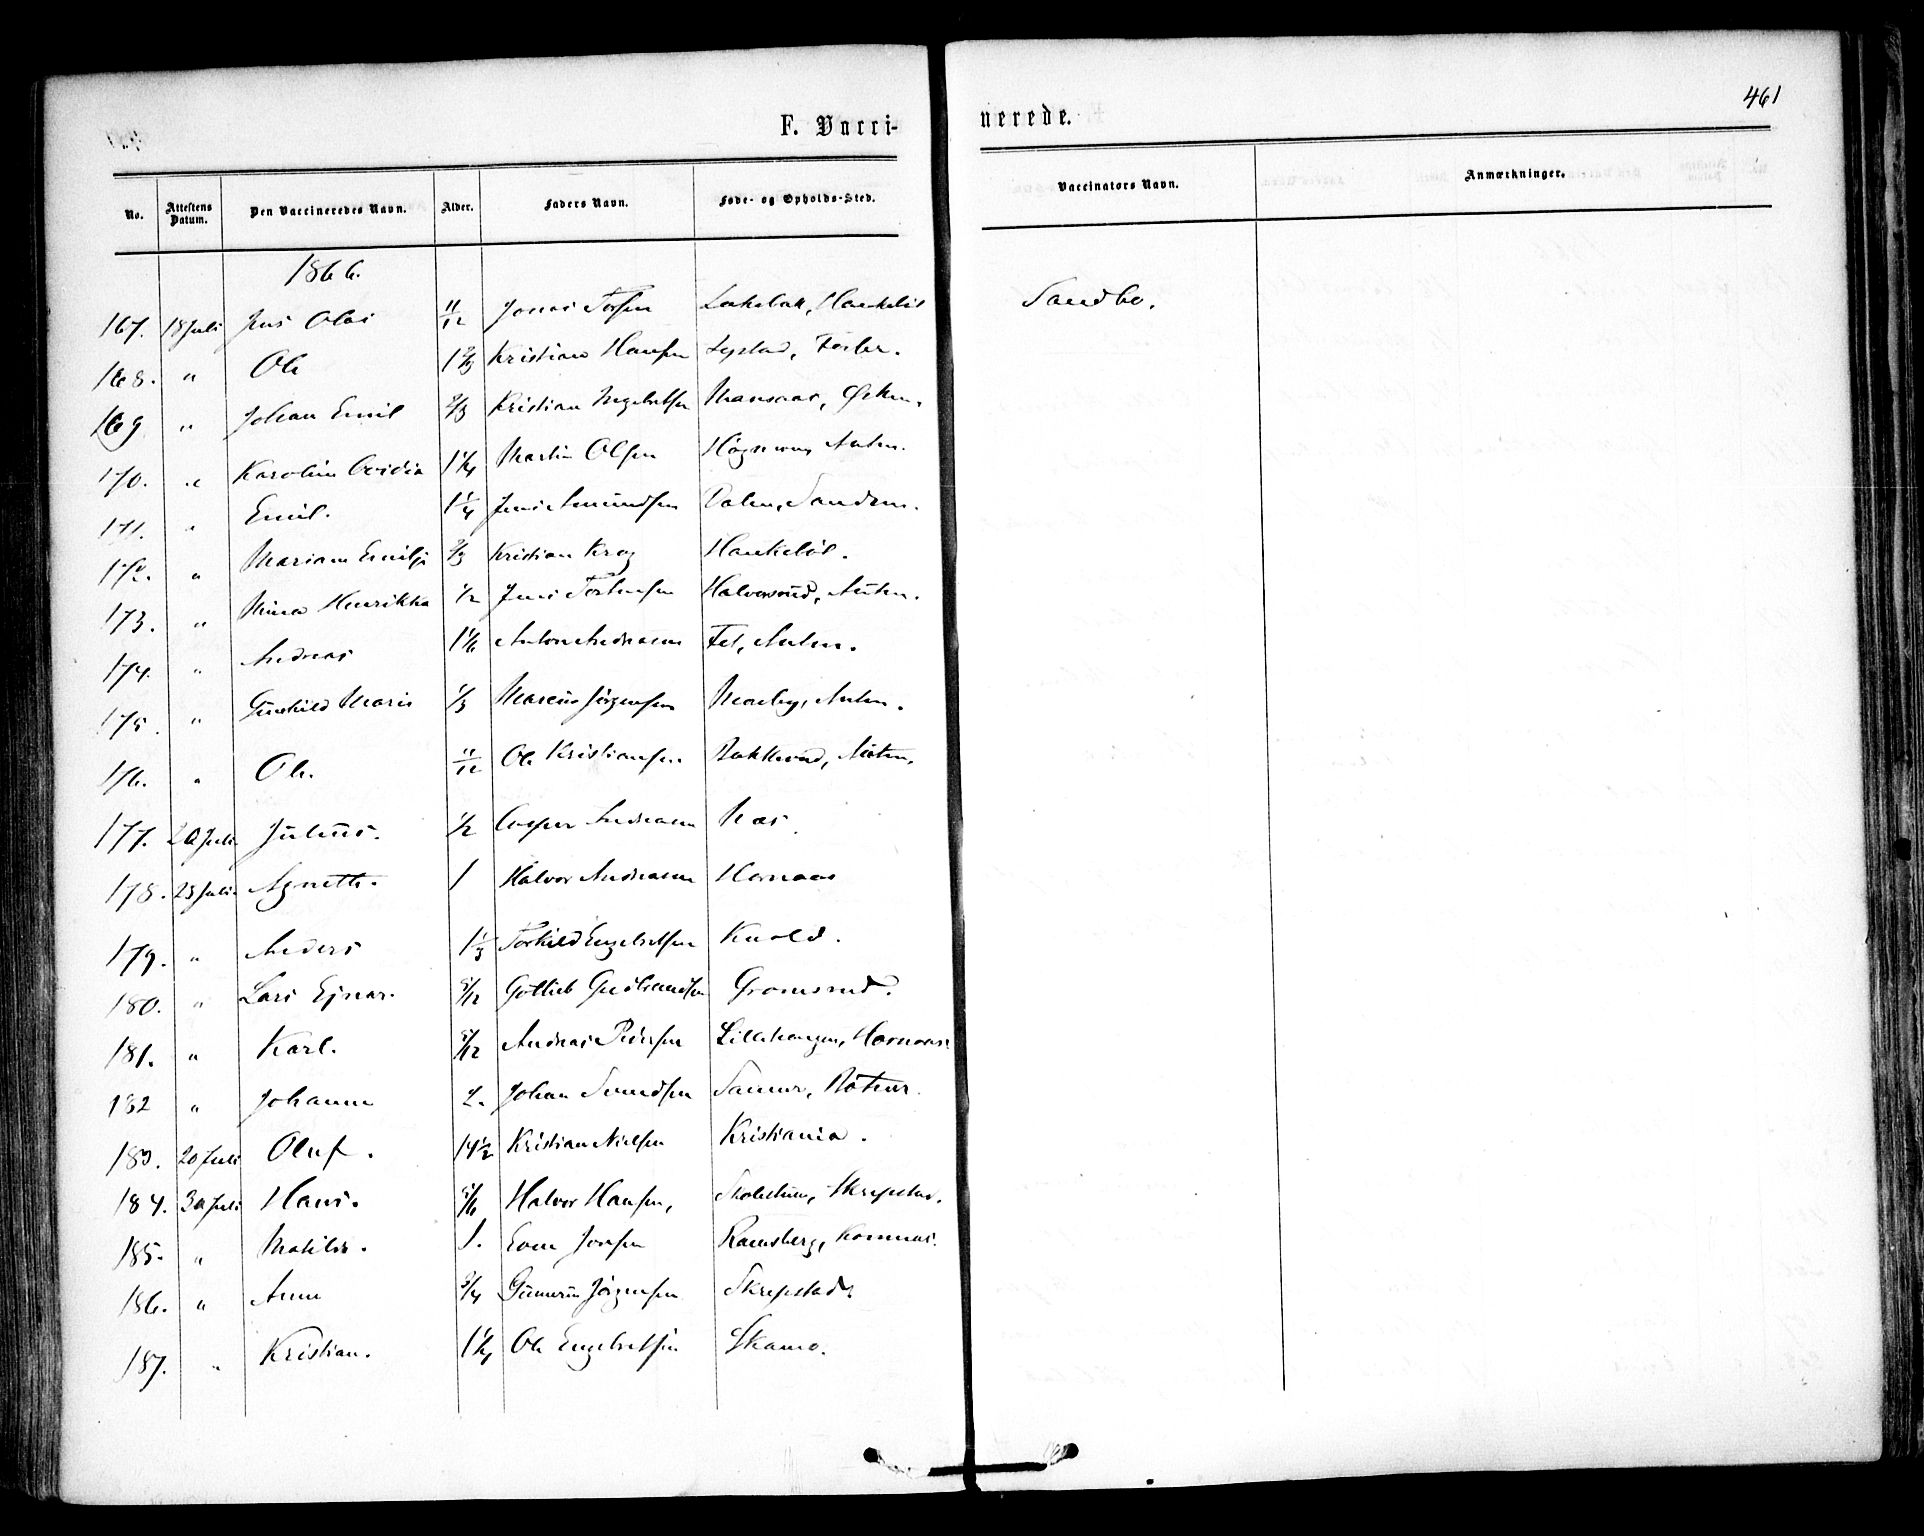 461
F. Vacci-nerede.
No. Attestens Datum. Den Vaccineredes Navn. Alder. Faders Navn. Føde- og Opholds-Sted. Vaccinators Navn. Anmærkninger.
1866.
167. 18 Juli Jens Olai 11/12 Jonas Torsen Haukelid Sandbo.
168. " Ole 1 2/3 Kristian Hansen
169 " Johan Emil 2/3 Kristian Ingebretsen
170. " Karolin Ovidia 1 1/4 Martin Olsen
171. " Emil. 1 1/4 Jens Amundsen Dalen, Sanden.
172. " Mariane Emilje 2/3 Kristian Krag
173. " Mina Henrikka 1/2 Jens Torstensen Halvorsrud,
174. " Andreas 1 1/6 Anton Andreasen
175. " Gunhild Marie 1/3 Marcus Jørgensen
176. " Ole. 11/12 Ole Kristiansen
177. 20 Juli Julius. 1/2 Casper Andreasen Næs
178. 23 Juli Agnette. 1 Halvor Andreasen Hornaas
179. " Anders 1 1/3 Torkild Engebretsen Knold.
180. " Lars Ejnar. 5/12 Gotlieb Gudbrandsen Gromsrud.
181. " Karl. 5/12 Andreas Pedersen Lillehaugen, Hornaas.
182 " Johanne 2. Johan Svendsen
183. 20 Juli Oluf. 14 1/2 Kristian Nielsen Kristiania.
184. 30 Juli Hans. 5/6 Halvor Hansen, Skrepstad.
185. " Matilde. 1. Even Jonsen Ramsberg,
186. " Anne 3/4 Gunerius Jørgensen Skrepstad.
187. " Kristian. 1 1/4 Ole Engebretsen Skamo.